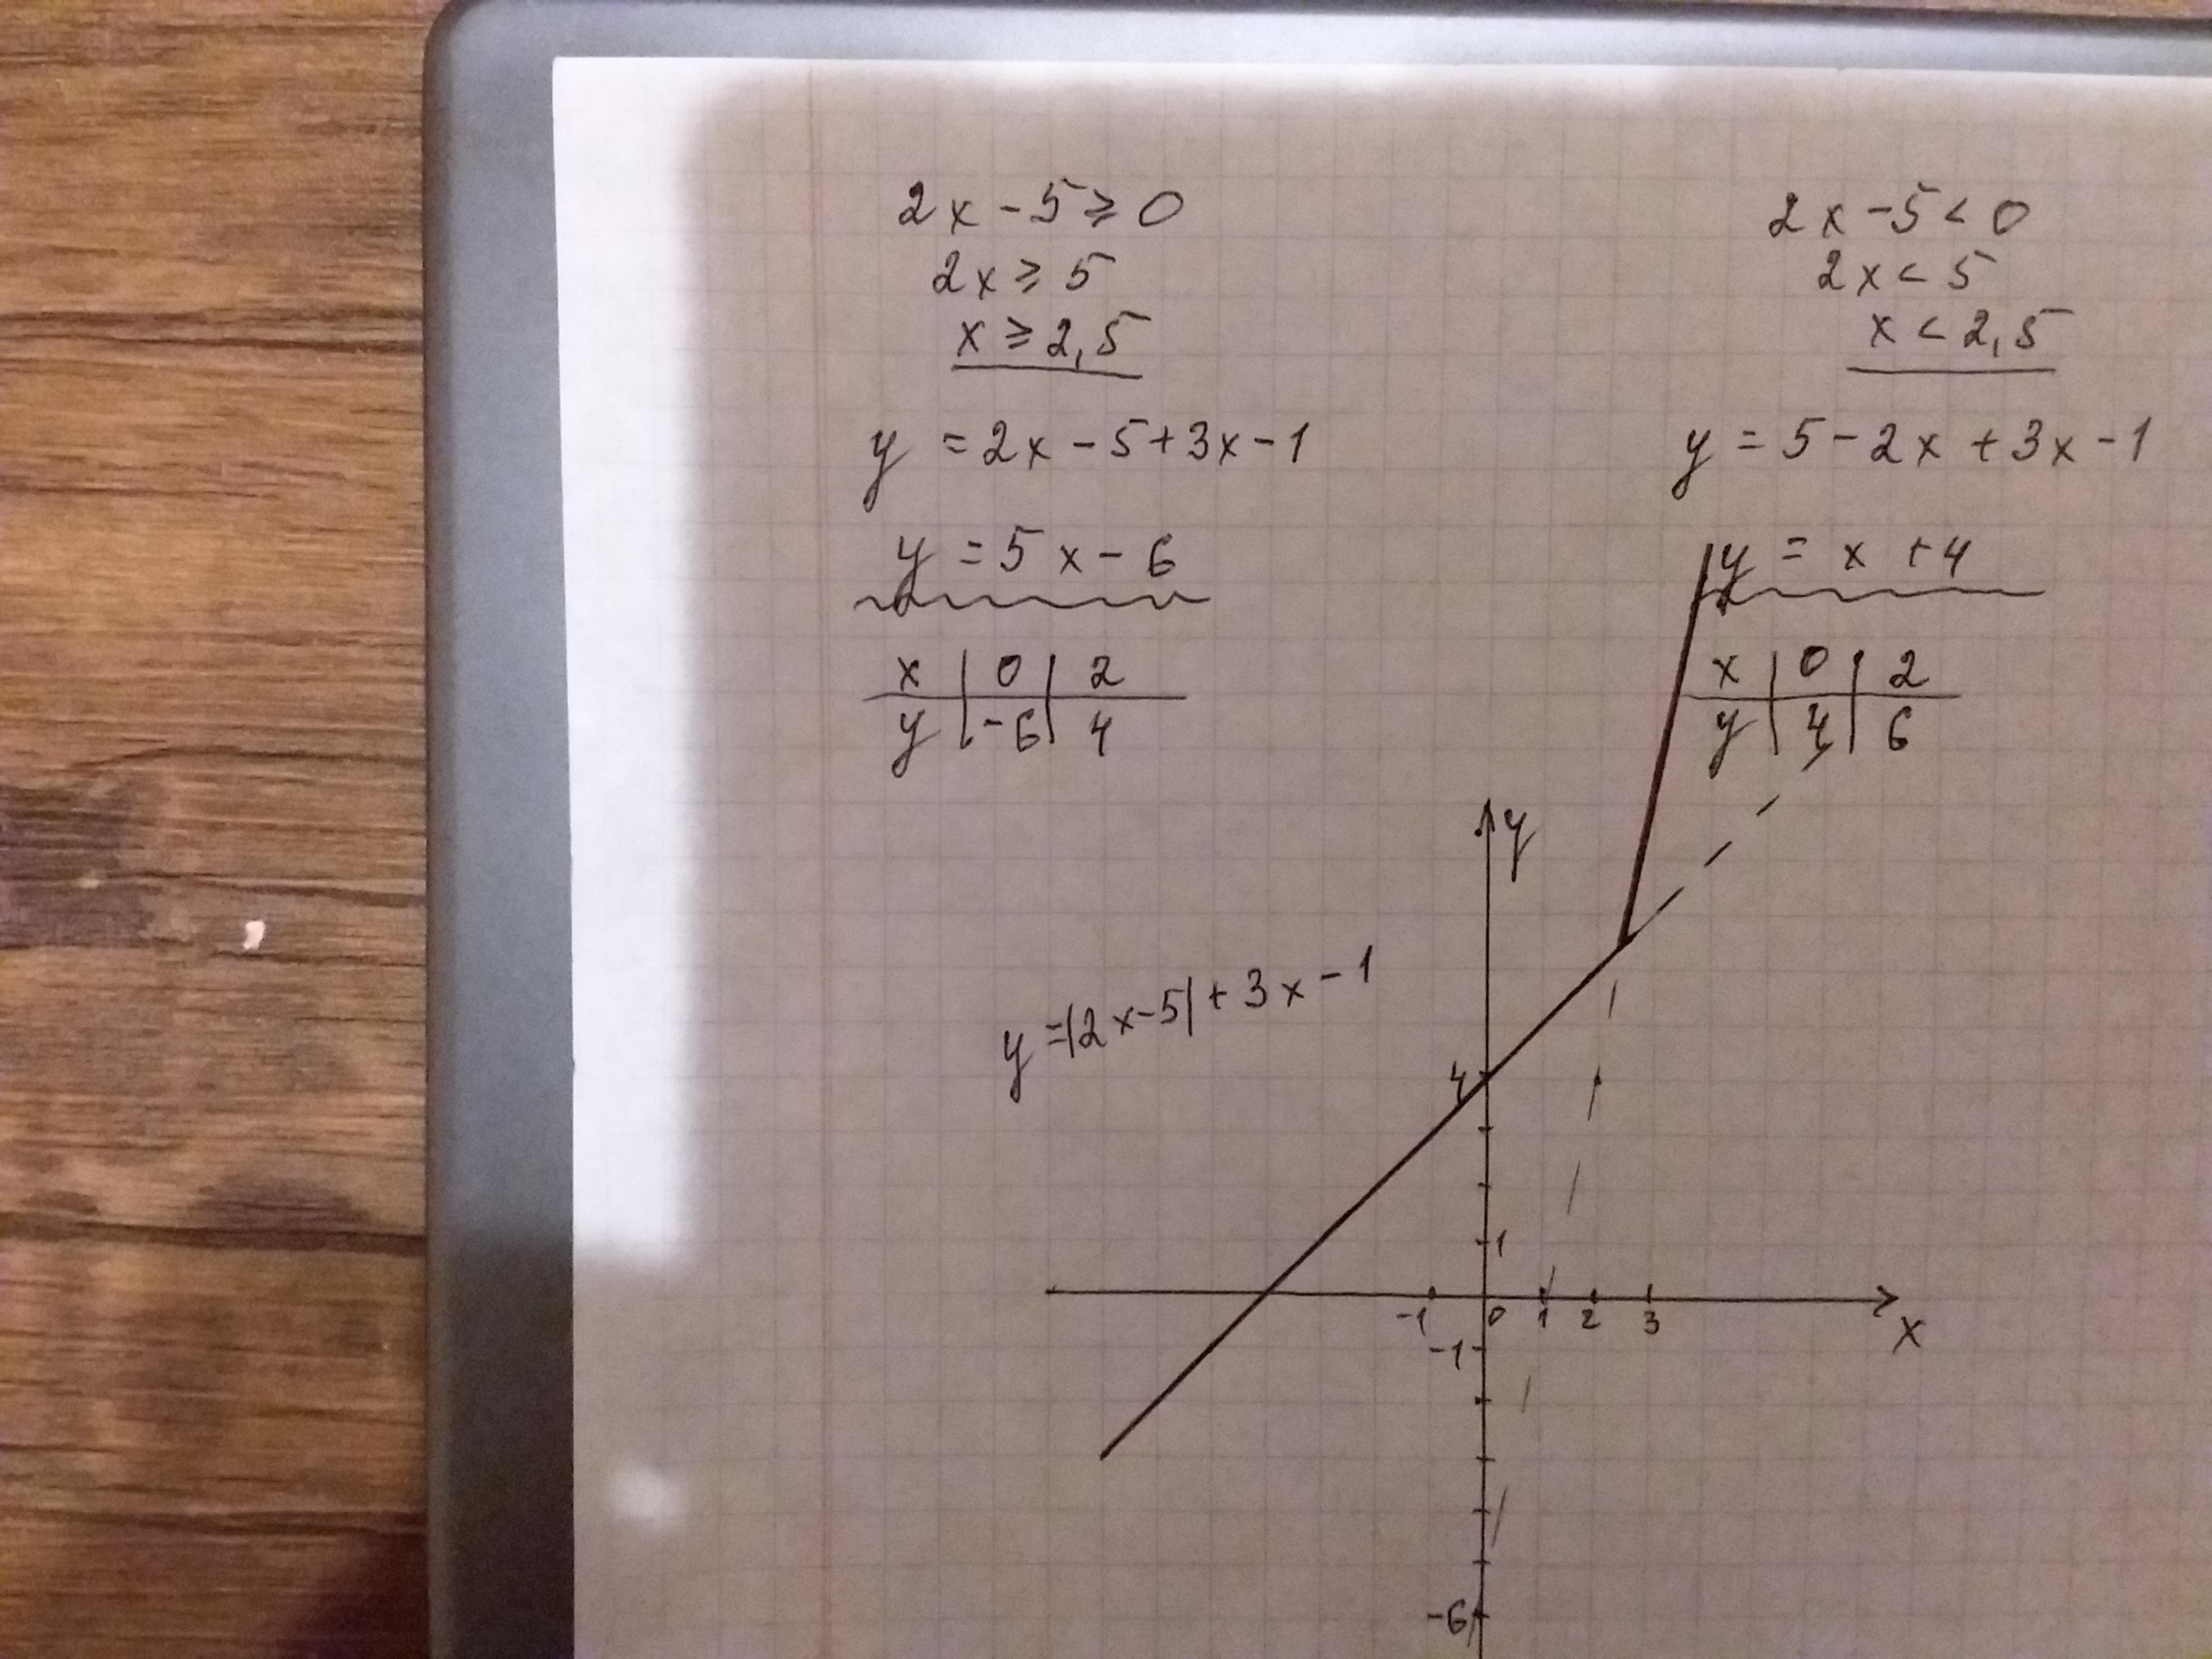 2x - 5 ≥ 0
2x ≥ 5
x ≥ 2,5
y = 2x - 5 + 3x - 1
y = 5x - 6
x | 0 | 2
y | -6 | 4
2x - 5 < 0
2x < 5
x < 2,5
y = 5 - 2x + 3x - 1
y = x + 4
x | 0 | 2
y | 4 | 6
y
y = |2x - 5| + 3x - 1
4
1
-1 0 1 2 3
x
-1
-6